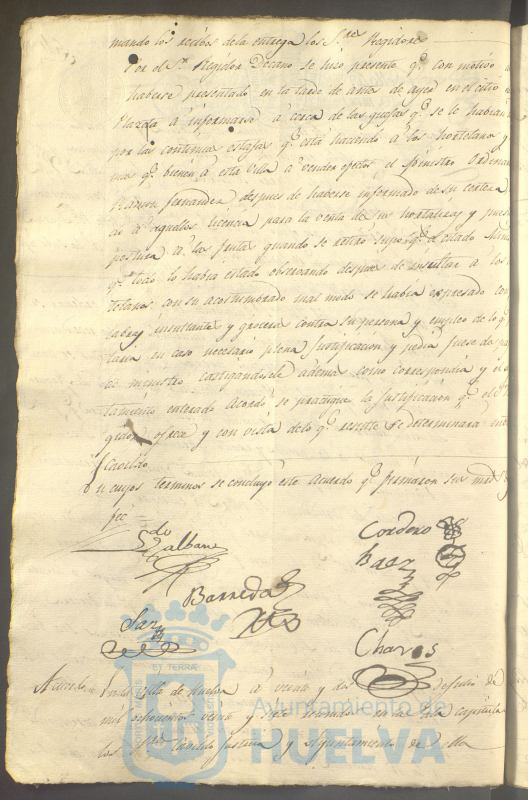 mando los recibos de la entrega los S.res Regidores
Por el S.or Regidor Decano se hiso presente q.e con motivo
haberse presentado en la tarde de antes de ayer en el citio
Plazeta á informarse á cerca de las quejas q.e se le habian
por las continuas estafas q.e está haciendo á los hortelanos y
mas q.e bienen á esta villa á vender efectos el Ministro Ordenan
Ramon Fernandez, despues de haberse informado de su certeza
á aquellos licencia para la venta de sus hortalizas y pues
postura á las frutas quando se retiró supo q.e el citado Minis
q.e todo lo habia estado observando despues de insultar á los
telanos con su acostumbrado mal modo se habia expresado con
labras insultantes y groceras contra su persona y empleo de lo q.e
taria en caso necesario plena justificacion y pedia fuese des
de ministro castigandosele ademas como correspondia y el
tamiento enterado Acordó se practique la justificacion q.e el S.or
ofrece y con vista de lo q.e resulte se determinará
Cavildo
En cuyos terminos se concluyó este acuerdo q.e firmaron sus mrds
fee =
Galbanes
Cordero
Baez
Barreda
Saz
Chaves
Acuerdo En la villa de Huelva á veinte y dos de Julio de
mil ochocientos veinte y siete estando en la sala capitular
los S.res Concejo justicia y Ayuntamiento de ella
PORTUS MARIS
ET TERRÆ
Ayuntamiento de
HUELVA